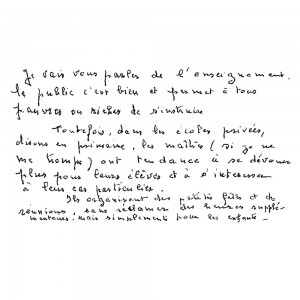 Je vais vous parler de l'enseignement.
Le public c'est bien et permet à tous
pauvres ou riches de s'instruire
Toutefois, dans les écoles privées,
disons en primaire, les maîtres (si je ne
me trompe) ont tendance à se dévouer
plus pour leurs élèves et à s'intéresser
à leur cas particulier.
Ils organisent des petites fêtes et de
réunions, sans réclamer des heures supplé-
mentaires, mais simplement pour les enfants.